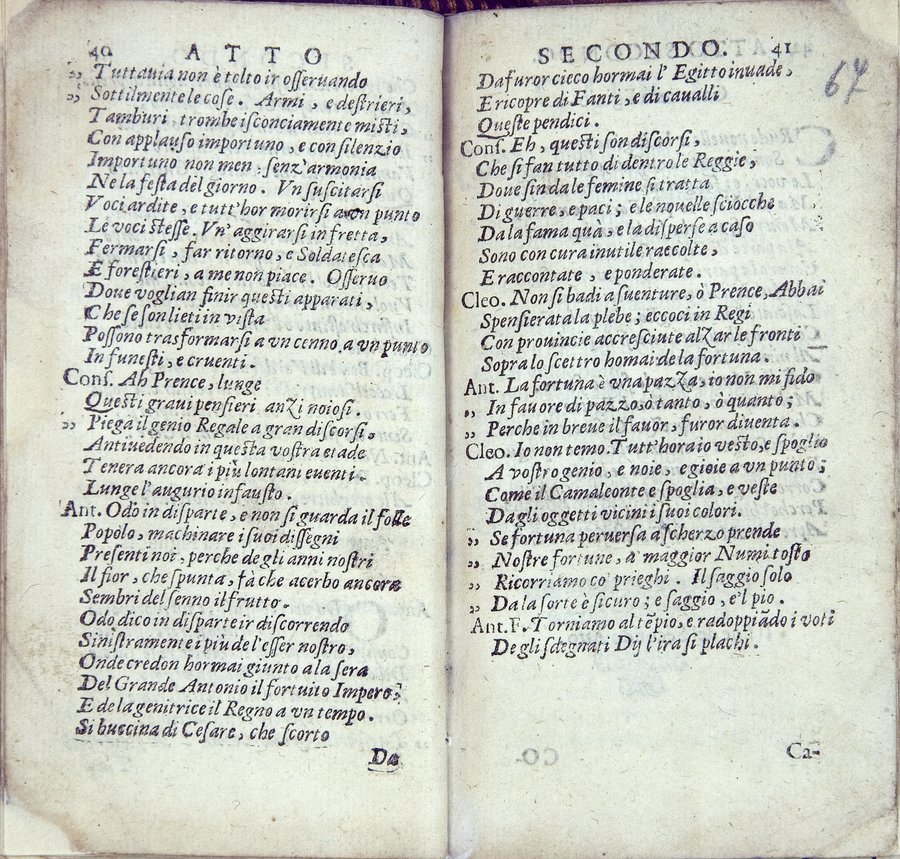 40 ATTO
„ Tuttauia non è tolto ir osseruando
„ Sottilmente le cose. Armi, e destrieri,
Tamburi, trombe isconciamente misti,
Con applauso importuno, e con silenzio
Importuno non men, senz'armonia
Ne la festa del giorno. Vn suscitarsi
Voci ardite, e tutt'hor morirsi a vn punto
Le voci stesse. Vn'aggirarsi in fretta,
Fermarsi, far ritorno, e Soldatesca
E forestieri, a me non piace. Osseruo
Doue voglian finir questi apparati,
Che se son lieti in vista
Possono trasformarsi a vn cenno a vn punto
In funesti, e cruenti.
Cons. Ah Prence, lunge
Questi graui pensieri anzi noiosi.
„ Piega il genio Regale a gran discorsi,
Antiuedendo in questa vostra etade
Tenera ancora i più lontani euenti.
Lunge l'augurio infausto.
Ant. Odo in disparte, e non si guarda il folle
Popolo, machinare i suoi dissegni
Presenti noi, perche de gli anni nostri
Il fior, che spunta, fà che acerbo ancora
Sembri del senno il frutto.
Odo dico in disparte ir discorrendo
Sinistramente i più de l'esser nostro,
Onde credon hormai giunto a la sera
Del Grande Antonio il fortuito Impero;
E de la genitrice il Regno a vn tempo.
Si buccina di Cesare, che scorto
Da
SECONDO. 41
67
Da furor cieco hormai l'Egitto inuade,
E ricopre di Fanti, e di caualli
Queste pendici.
Cons. Eh, questi son discorsi,
Che si fan tutto di dentro le Reggie,
Doue sin da le femine si tratta
Di guerre, e paci; e le nouelle sciocche
Da la fama quà, e là disperse a caso
Sono con cura inutile raccolte,
E raccontate, e ponderate.
Cleo. Non si badi a suenture, ò Prence, Abbai
Spensierata la plebe; eccoci in Regi
Con prouincie accresciute alzar le fronte
Sopra lo scettro homai de la fortuna.
Ant. La fortuna è vna pazza, io non mi fido
„ In fauore di pazzo, ò tanto, ò quanto;
„ Perche in breue il fauor, furor diuenta.
Cleo. Io non temo. Tutt'hora io vesto, e spoglio
A vostro genio, e noie, e gioie a vn punto;
Come il Camaleonte e spoglia, e veste
Dagli oggetti vicini i suoi colori.
„ Se fortuna peruersa a scherzo prende
„ Nostre fortune, a maggior Numi tosto
„ Ricorriamo co' prieghi. Il saggio solo
„ Da la sorte è sicuro; e saggio, e'l pio.
Ant. F. Torniamo al tẽpio, e radoppiãdo i voti
De gli sdegnati Dij l'ira si plachi.